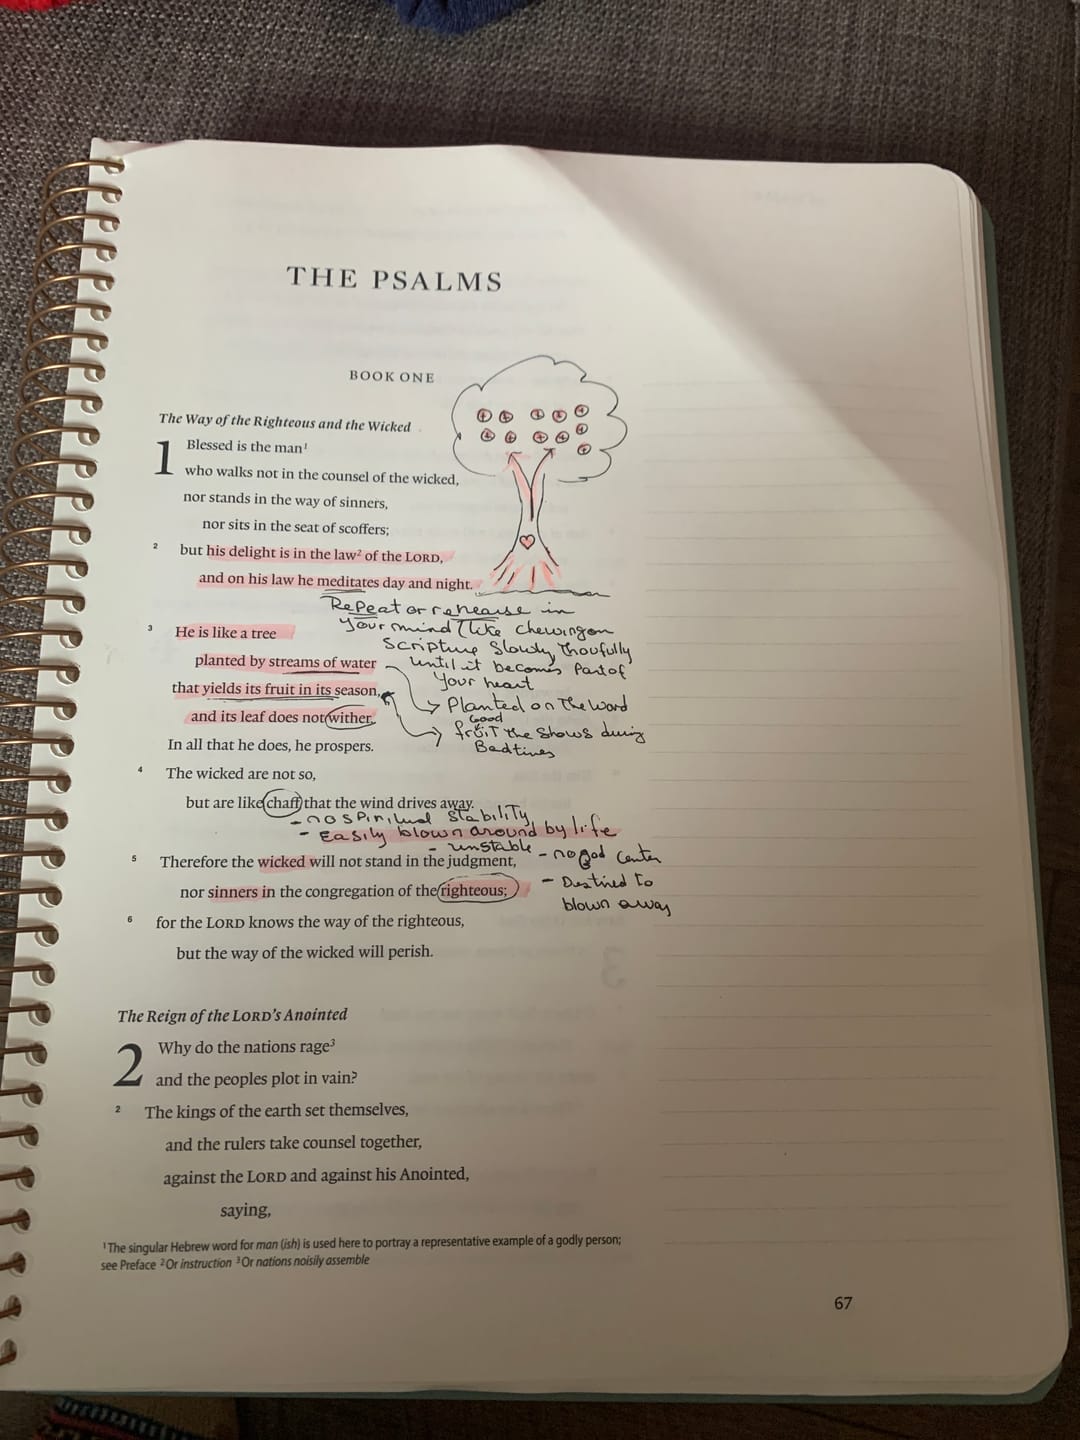 THE PSALMS
BOOK ONE
The Way of the Righteous and the Wicked
1 Blessed is the man¹
who walks not in the counsel of the wicked,
nor stands in the way of sinners,
nor sits in the seat of scoffers;
2 but his delight is in the law² of the LORD,
and on his law he meditates day and night.
Repeat or rehearse in
your mind (like chewing on
Scripture slowly, thoufully
until it becomes part of
your heart
3 He is like a tree
planted by streams of water
that yields its fruit in its season,
→ Planted on the word
and its leaf does not wither.
Good
fruit the shows during
Badtimes
In all that he does, he prospers.
4 The wicked are not so,
but are like chaff that the wind drives away.
- no spiritual stability
- Easily blown around by life
- unstable
5 Therefore the wicked will not stand in the judgment,
- no god center
nor sinners in the congregation of the righteous;
- Destined to
blown away
6 for the LORD knows the way of the righteous,
but the way of the wicked will perish.
The Reign of the LORD's Anointed
2 Why do the nations rage³
and the peoples plot in vain?
2 The kings of the earth set themselves,
and the rulers take counsel together,
against the LORD and against his Anointed,
saying,
¹ The singular Hebrew word for man (ish) is used here to portray a representative example of a godly person;
see Preface ² Or instruction ³ Or nations noisily assemble
67